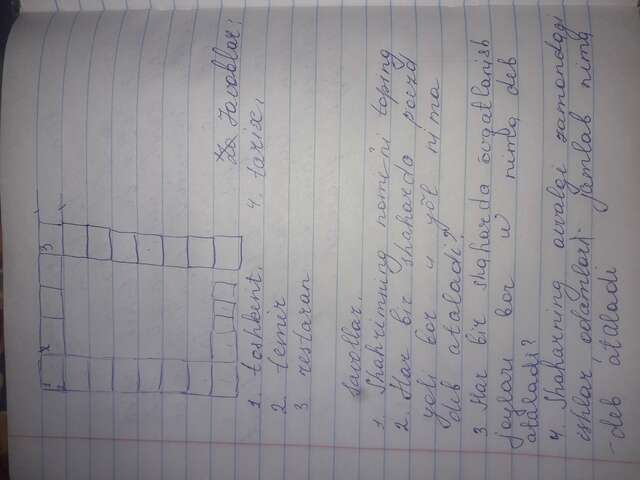 1 2 3
4
Javoblar:
1. toshkent. 4. tarix.
2. temir
3 restaran
Savollar.
1. Shahrimning nomini toping
2. Har bir shaharda poezd
yoli bor u yõl nima
deb ataladi?
3 Har bir shaharda ovqatlanish
joylari bor u nima deb
ataladi?
4. Shaharning avvalgi zamondagi
ishlar odamlari jamlab nima
deb ataladi